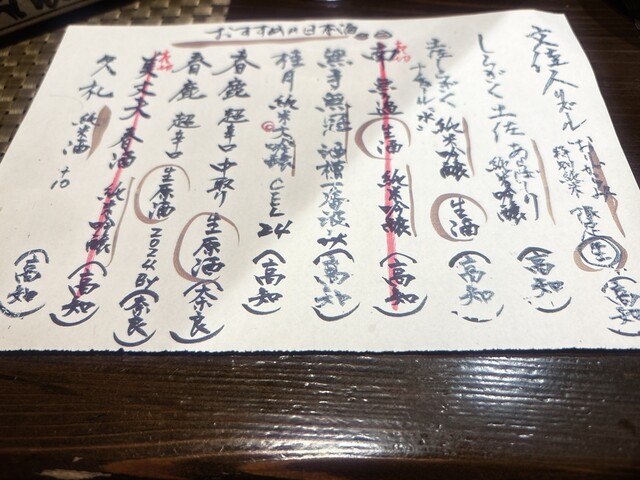 おすすめの日本酒
文佳人リズール おりがらみ 特別純米 限定 生 (高知)
しらぎく 土佐 あらばしり 純米吟醸 (高知)
純米吟醸 生酒 (高知)
南 無過 生酒 純米吟醸 (高知)
無手無冠 (高知)
桂月 純米大吟醸 CEL24 (高知)
春鹿 超辛口 中取り 生原酒 (奈良)
春鹿 超辛口 生原酒 2024BY (奈良)
美丈夫 春酒 純米吟醸 (高知)
久礼 純米酒 +10 (高知)